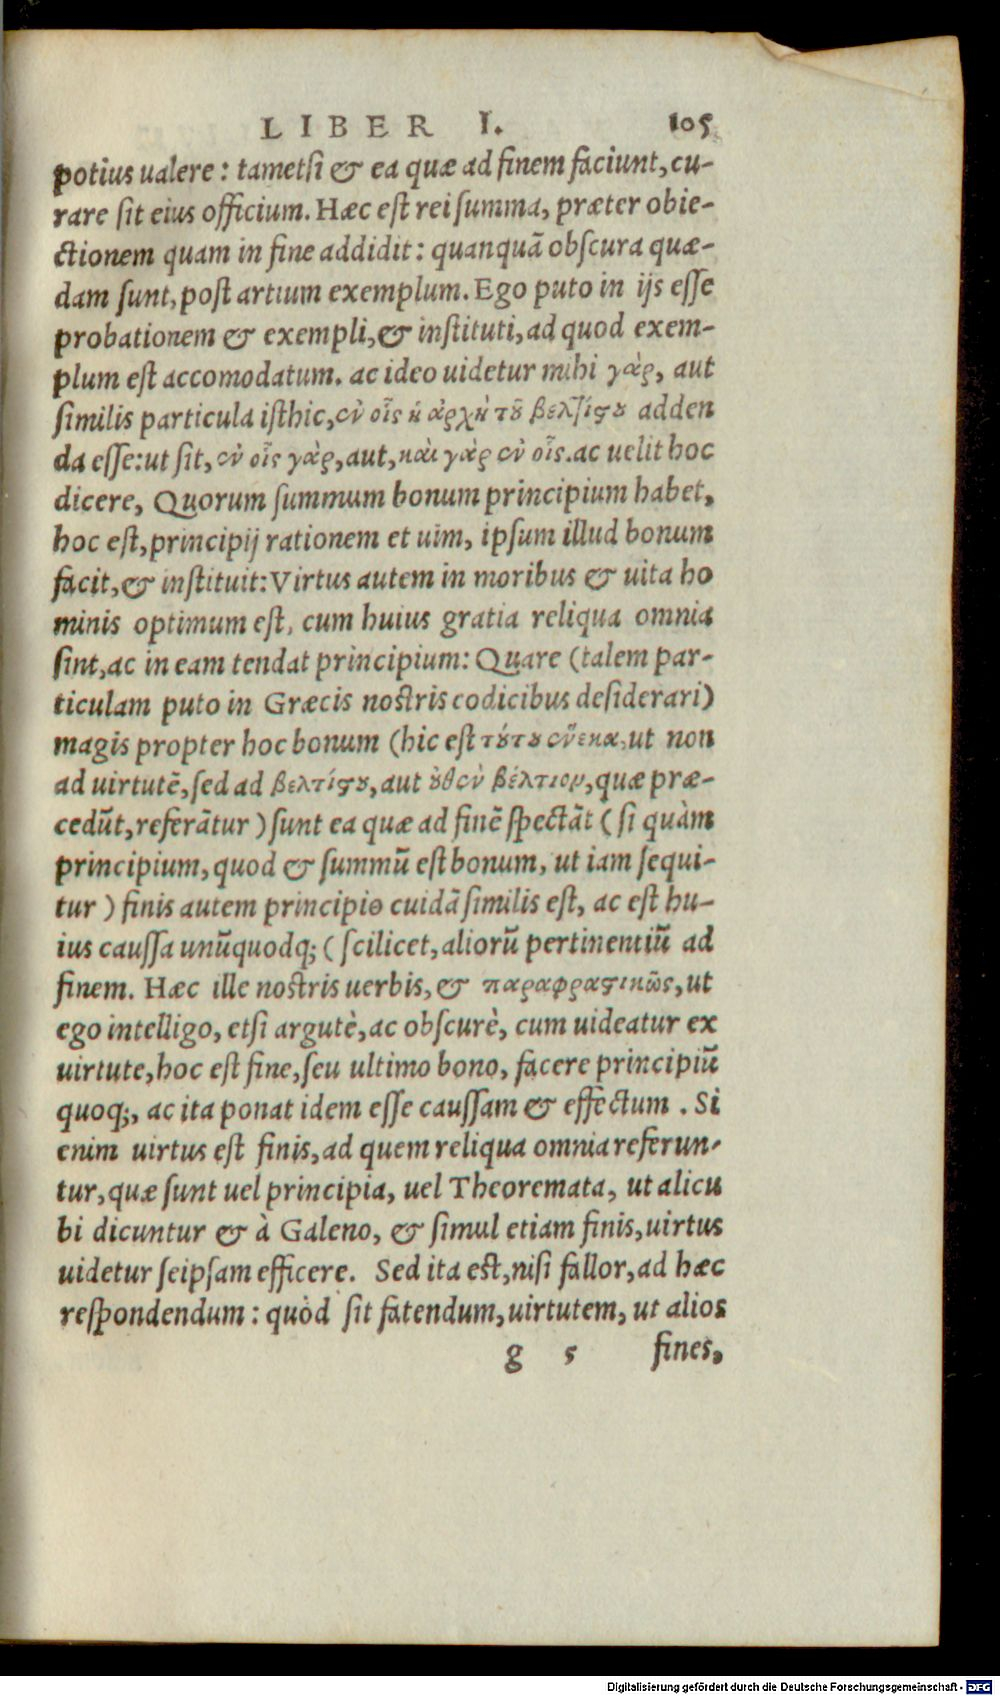 LIBER I. 105
potius ualere: tametsi & ea quæ ad finem faciunt, cu-
rare sit eius officium. Hæc est rei summa, præter obie-
ctionem quam in fine addidit: quanquā obscura quæ-
dam sunt, post artium exemplum. Ego puto in ijs esse
probationem & exempli, & instituti, ad quod exem-
plum est accomodatum. ac ideo uidetur mihi γὰρ, aut
similis particula isthic, ἐν οἷς ἡ ἀρχὴ τοῦ βελτίστου adden
da esse: ut sit, ἐν οἷς γὰρ, aut, καὶ γὰρ ἐν οἷς. ac uelit hoc
dicere, Quorum summum bonum principium habet,
hoc est, principij rationem et uim, ipsum illud bonum
facit, & instituit: Virtus autem in moribus & uita ho
minis optimum est, cum huius gratia reliqua omnia
sint, ac in eam tendat principium: Quare (talem par-
ticulam puto in Græcis nostris codicibus desiderari)
magis propter hoc bonum (hic est τούτου ἕνεκα, ut non
ad uirtutē, sed ad βελτίστου, aut οὗθεν βέλτιον, quæ præ-
cedūt, referātur) sunt ea quæ ad finē spectāt (si quàm
principium, quod & summū est bonum, ut iam sequi-
tur) finis autem principio cuidā similis est, ac est hu-
ius caussa unūquodq; (scilicet, aliorū pertinentiū ad
finem. Hæc ille nostris uerbis, & παραφραστικῶς, ut
ego intelligo, etsi argutè, ac obscurè, cum uideatur ex
uirtute, hoc est fine, seu ultimo bono, facere principiū
quoq;, ac ita ponat idem esse caussam & effectum. Si
enim uirtus est finis, ad quem reliqua omnia referun-
tur, quæ sunt uel principia, uel Theoremata, ut alicu
bi dicuntur & à Galeno, & simul etiam finis, uirtus
uidetur seipsam efficere. Sed ita est, nisi fallor, ad hæc
respondendum: quòd sit fatendum, uirtutem, ut alios
g 5 fines,
Digitalisierung gefördert durch die Deutsche Forschungsgemeinschaft - DFG